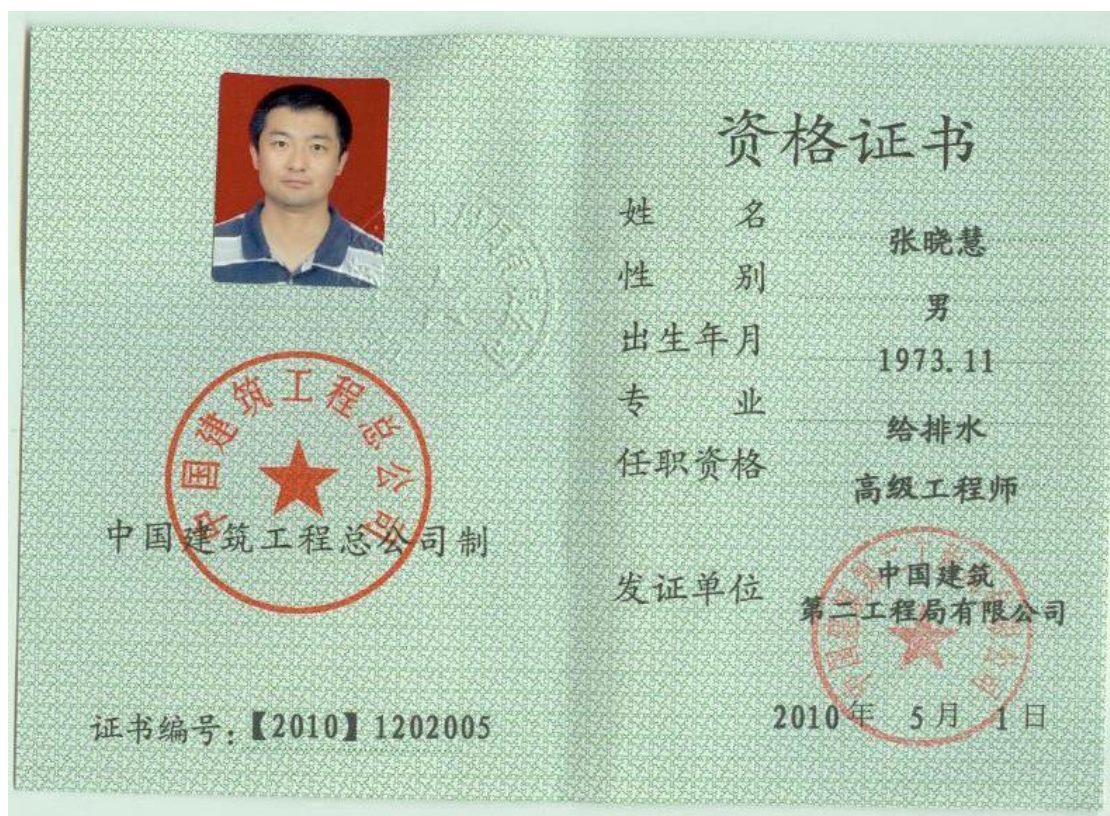 中国建筑工程总公司
中国建筑工程总公司制
证书编号:【2010】1202005
资格证书
姓 名 张晓慧
性 别 男
出生年月 1973.11
专 业 给排水
任职资格 高级工程师
发证单位 中国建筑
第二工程局有限公司
2010年 5月 1日